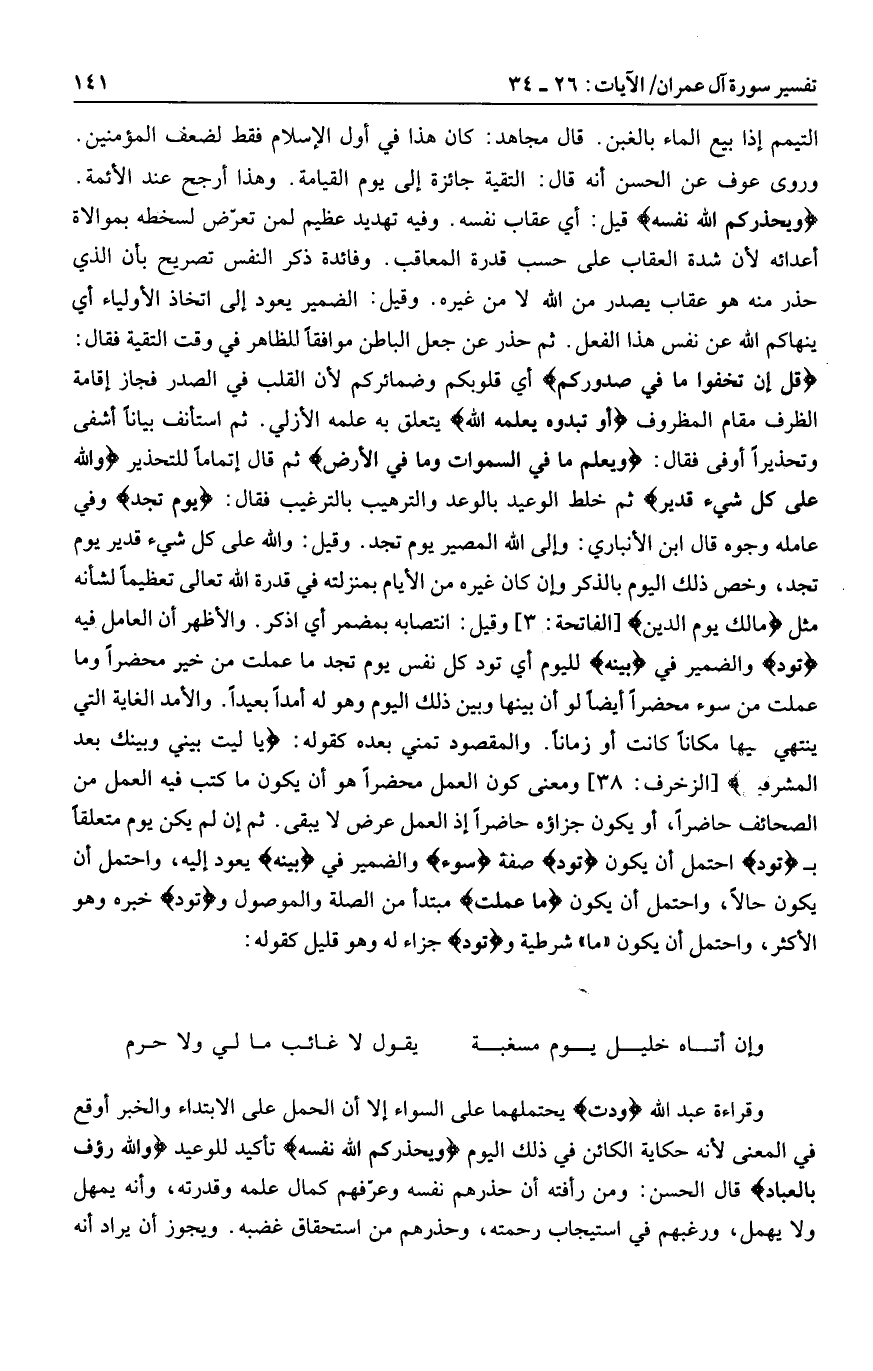 تفسير سورة آل عمران/ الآيات: ٢٦ - ٣٤ ١٤١
التيمم إذا بيع الماء بالغبن. قال مجاهد: كان هذا في أول الإسلام فقط لضعف المؤمنين.
وروى عوف عن الحسن أنه قال: التقية جائزة إلى يوم القيامة. وهذا أرجح عند الأئمة.
﴿ويحذركم الله نفسه﴾ قيل: أي عقاب نفسه. وفيه تهديد عظيم لمن تعرّض لسخطه بموالاة
أعدائه لأن شدة العقاب على حسب قدرة المعاقب. وفائدة ذكر النفس تصريح بأن الذي
حذر منه هو عقاب يصدر من الله لا من غيره. وقيل: الضمير يعود إلى اتخاذ الأولياء أي
ينهاكم الله عن نفس هذا الفعل. ثم حذر عن جعل الباطن موافقاً للظاهر في وقت التقية فقال:
﴿قل إن تخفوا ما في صدوركم﴾ أي قلوبكم وضمائركم لأن القلب في الصدر فجاز إقامة
الظرف مقام المظروف ﴿أو تبدوه يعلمه الله﴾ يتعلق به علمه الأزلي. ثم استأنف بياناً أشفى
وتحذيراً أوفى فقال: ﴿ويعلم ما في السموات وما في الأرض﴾ ثم قال إتماماً للتحذير ﴿والله
على كل شيء قدير﴾ ثم خلط الوعيد بالوعد والترهيب بالترغيب فقال: ﴿يوم تجد﴾ وفي
عامله وجوه قال ابن الأنباري: وإلى الله المصير يوم تجد. وقيل: والله على كل شيء قدير يوم
تجد، وخص ذلك اليوم بالذكر وإن كان غيره من الأيام بمنزلته في قدرة الله تعالى تعظيماً لشأنه
مثل ﴿مالك يوم الدين﴾ [الفاتحة: ٣] وقيل: انتصابه بمضمر أي اذكر. والأظهر أن العامل فيه
﴿تود﴾ والضمير في ﴿بينه﴾ لليوم أي تود كل نفس يوم تجد ما عملت من خير محضراً وما
عملت من سوء محضراً أيضاً لو أن بينها وبين ذلك اليوم وهو له أمداً بعيداً. والأمد الغاية التي
ينتهي إليها مكاناً كانت أو زماناً. والمقصود تمني بعده كقوله: ﴿يا ليت بيني وبينك بعد
المشرقين﴾ [الزخرف: ٣٨] ومعنى كون العمل محضراً هو أن يكون ما كتب فيه العمل من
الصحائف حاضراً، أو يكون جزاؤه حاضراً إذ العمل عرض لا يبقى. ثم إن لم يكن يوم متعلقاً
بـ ﴿تود﴾ احتمل أن يكون ﴿تود﴾ صفة ﴿سوء﴾ والضمير في ﴿بينه﴾ يعود إليه، واحتمل أن
يكون حالاً، واحتمل أن يكون ﴿ما عملت﴾ مبتدأ من الصلة والموصول و﴿تود﴾ خبره وهو
الأكثر، واحتمل أن يكون «ما» شرطية و﴿تود﴾ جزاء له وهو قليل كقوله:
وإن أتـــاه خليـــل يـــوم مسغبـــة يقـول لا غـائـب مـا لـي ولا حـرم
وقراءة عبد الله ﴿ودت﴾ يحتملهما على السواء إلا أن الحمل على الابتداء والخبر أوقع
في المعنى لأنه حكاية الكائن في ذلك اليوم ﴿ويحذركم الله نفسه﴾ تأكيد للوعيد ﴿والله رؤف
بالعباد﴾ قال الحسن: ومن رأفته أن حذرهم نفسه وعرّفهم كمال علمه وقدرته، وأنه يمهل
ولا يهمل، ورغبهم في استيجاب رحمته، وحذرهم من استحقاق غضبه. ويجوز أن يراد أنه